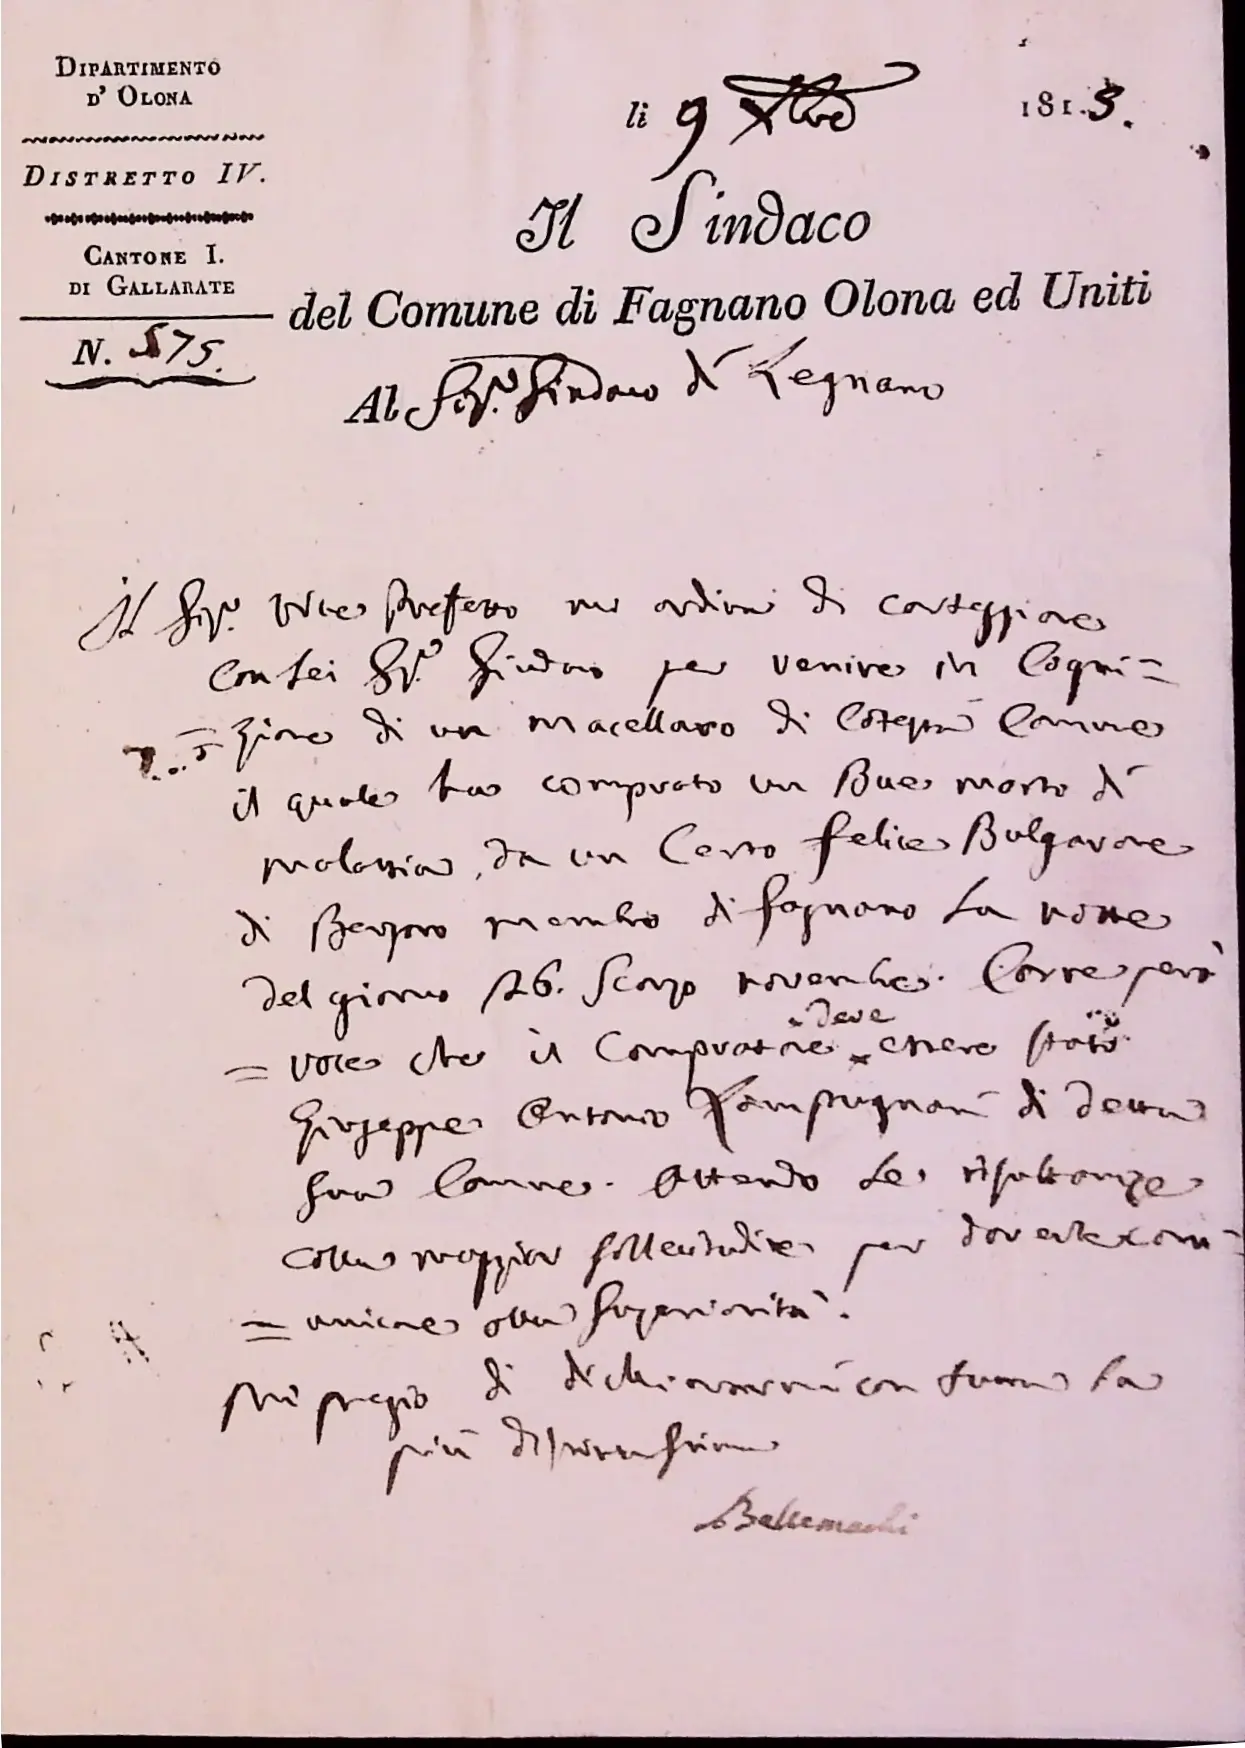 DIPARTIMENTO
D' OLONA
DISTRETTO IV.
CANTONE I.
DI GALLARATE
N. 575.
li 9 Xbre 1813.
Il Sindaco
del Comune di Fagnano Olona ed Uniti
Al Sigr. Sindaco di Legnano
Il Sigr. Vice Prefetto mi ordina di carteggiare
con Lei Sigr. Sindaco per venire in Cogni=
=zione di un macellaro di Cotesta Comune
il quale ha comprato un Bue morto di
malattia, da un Certo Felice Bulgarone
di membro di Fagnano la notte
del giorno 26. Scorso novembre. Corre però
= voce che il Compratore deve essere stato
Giuseppe Antonio Lampugnani di detta
sua Comune. Attendo le risultanze
colla maggior sollecitudine per doverle com=
=unicare alla Superiorità.
Mi pregio di dichiararmi con tutta la
più distinta stima